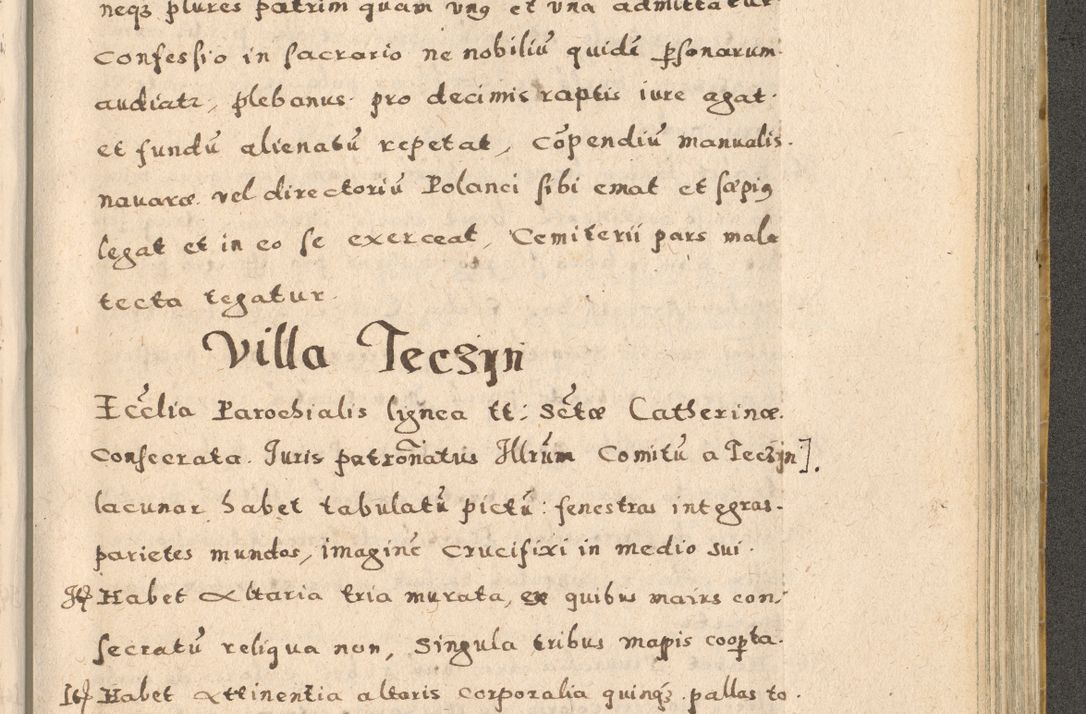 neqȝ plures patrim quam vnꝰ et vna admittatur
Confessio in sacrario ne nobiliū quidē ꝑsonarum
audiatr, plebanus pro decimis raptis iure agat.
et fundū alienatū repetat, Cōpendiū manualis.
nauaræ vel directoriū Polanci sibi emat et sæpiꝰ
legat et in eo se exerceat, Cemiterii pars male
tecta tegatur.
Villa Teczyn
Eccłia Parochialis lignea tt: Sc̃tæ Catherinæ.
consecrata. Iuris patron̄atus Illrūm Comitū a Teczyn].
lacunar habet tabulatū pictū: fenestras integras.
parietes mundos, imaginē Crucifixi in medio sui.
Itꝫ Habet Altaria tria murata, ex quibus maius con:
secratū reliqua non, Singula tribus mapis cooꝑta.
Itꝫ Habet Attinentia altaris corporalia quinqȝ. pallas to.